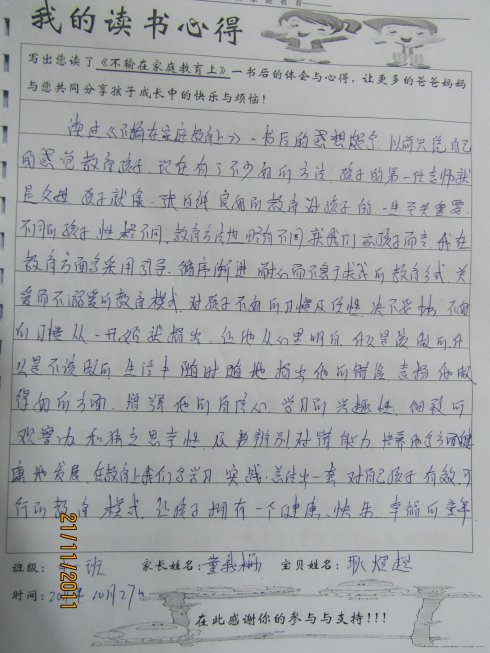 家庭教育
我的读书心得
写出您读了《不输在家庭教育上》一书后的体会与心得，让更多的爸爸妈妈
与您共同分享孩子成长中的快乐与烦恼！
读过《不输在家庭教育上》一书后的感想颇多，以前只凭自己
的感觉教育孩子，现在有了不少好的方法，孩子的第一任老师就
是父母，孩子就像一张白纸，良好的教育对孩子的一生至关重要
不同的孩子性格不同，教育方法也略有不同，就我们的孩子而言，我在
教育方面多采用引导、循序渐进、耐心而不急于求成的教育方式，关
爱而不溺爱的教育模式，对孩子不好的习惯及任性决不妥协，不好
的习惯从一开始就指出，让他从心里明白，什么是该做的，什
么是不该做的，生活中随时随地指出他的错误，表扬他做
得好的方面，增强他的自信心，学习的兴趣性，细致的
观察力和独立思考性，及其辨别对错能力，培养他多方面健
康地发展，在教育上我们多学习，实践，总结出一套对自己孩子有效可
行的教育模式，让孩子拥有一个健康、快乐、幸福的童年
班级： 班 家长姓名：童 宝贝姓名：耿煜超
时间：2011年10月27日
在此感谢你的参与与支持！！！
21/11/2011